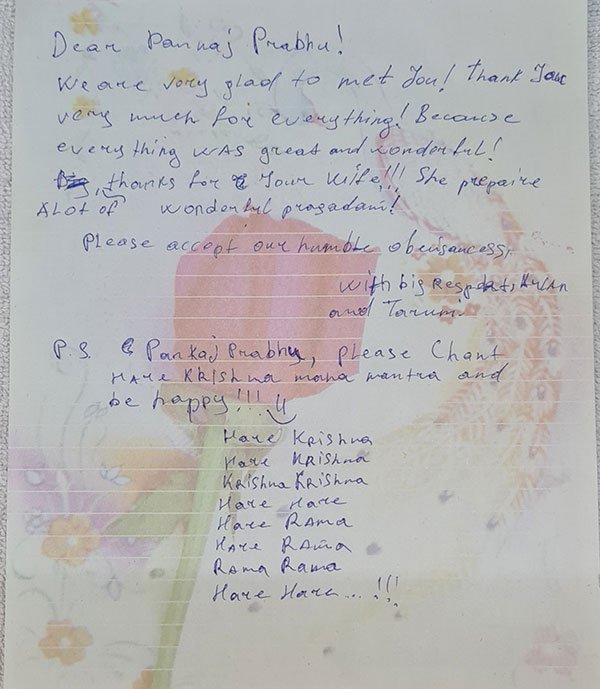 Dear Pankaj Prabhu!
We are very glad to met You! Thank You
very much for everything! Because
everything was great and wonderful!
, thanks for Your wife!!! She prepaire
A lot of wonderful prasadam!
Please accept our humble obeisancess,
with big Respekt,
and Tarumi.
P.S. Pankaj Prabhu, please Chant
HARE KRISHNA maha mantra and
be happy!!!
Hare Krishna
Hare Krishna
Krishna Krishna
Hare Hare
Hare RAma
HAre RAma
RAma Rama
Hare Hare...!!!